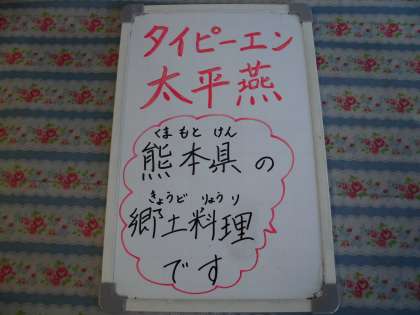 タイピーエン
太平燕
くまもとけん
熊本県の
きょうどりょうり
郷土料理
です